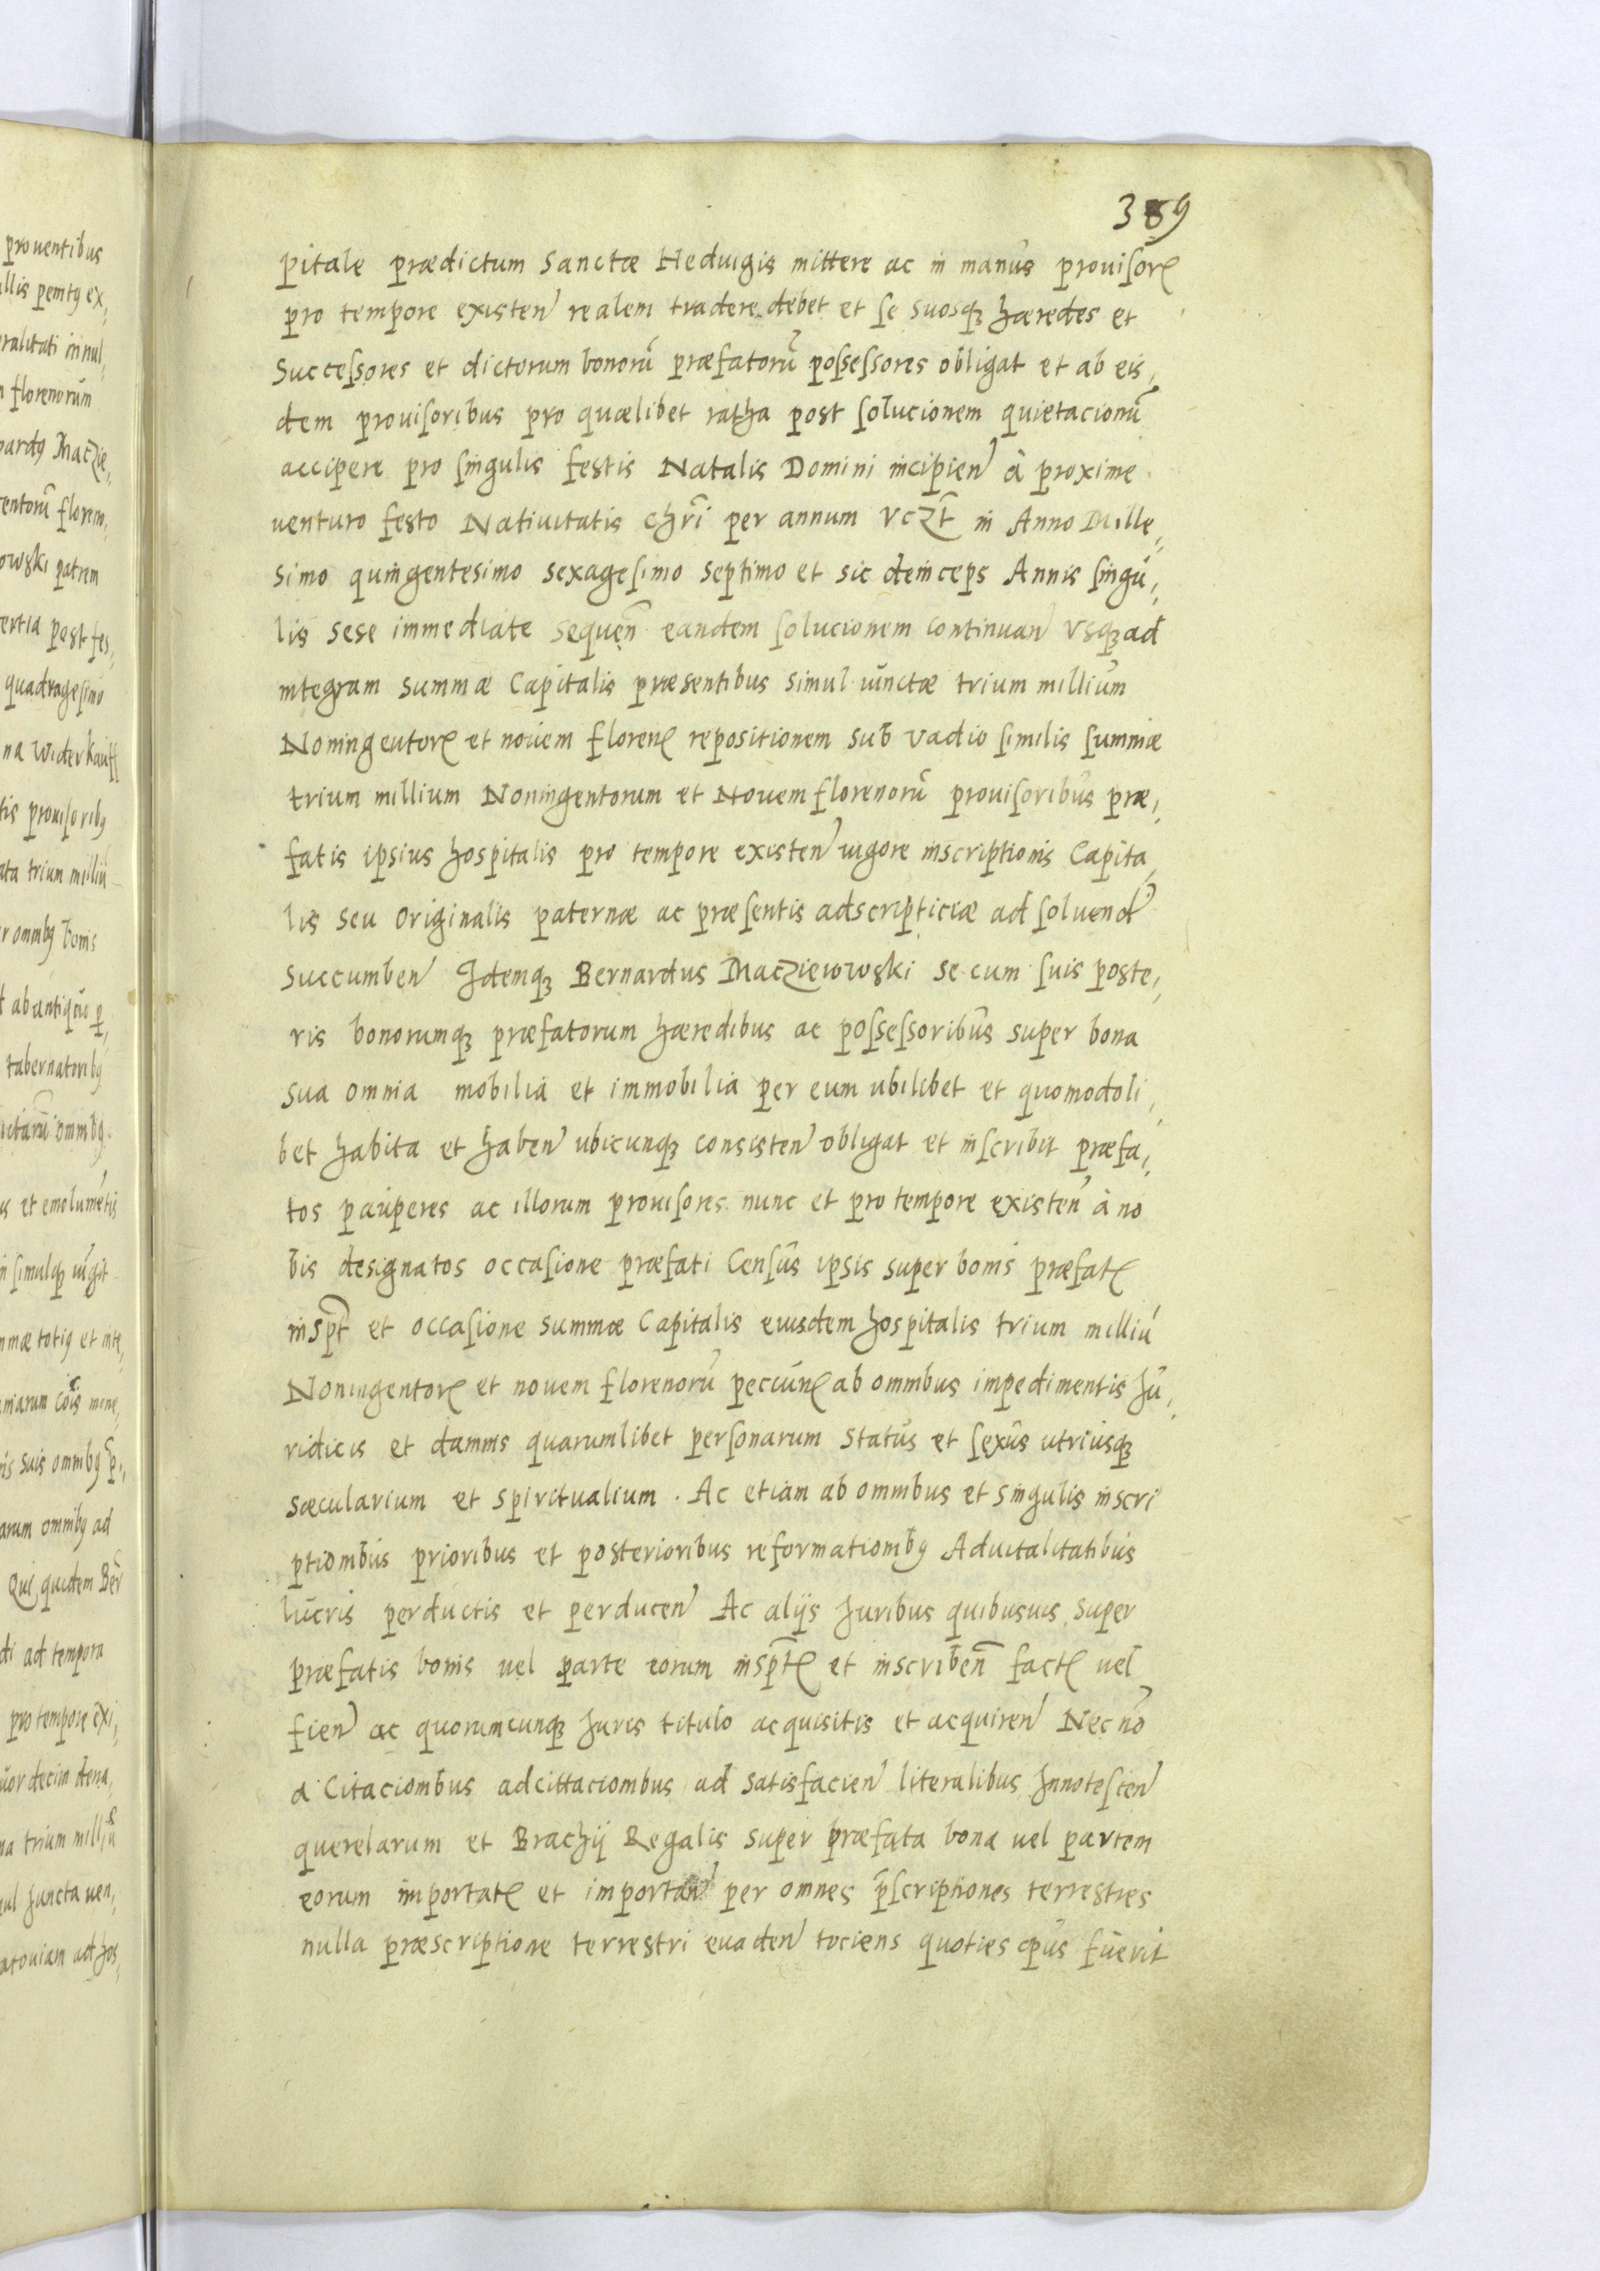 389
pitale prædictum Sanctæ Heduigis mittere ac in manus prouisorꝭ
pro tempore existen̄ realem tradere debet et se suosqꝫ hæredes et
Successores et dictorum bonorū præfatorū possessores obligat et ab eis,
dem prouisoribus pro quælibet ratha post solucionem quietacionū
accipere pro singulis festis Natalis Domini incipien̄ à proxime
uenturo festo Natiuitatis Chri̅ per annum vczt̄ in Anno Mille,
simo quingentesimo sexagesimo septimo et sic deinceps Annis singu,
lis sese immediate sequen̄ eandem solucionem continuan̄ vsqꝫ ad
integram summæ Capitalis præsentibus simul iunctæ trium millium
Noningentorꝭ et nouem florenꝭ repositionem sub vadio similis summæ
trium millium Noningentorum et Nouem florenorū prouisoribus præ,
fatis ipsius hospitalis pro tempore existen̄ uigore inscriptionis Capita,
lis seu originalis paternæ ac præsentis adscripticiæ ad soluend̄
succumben̄ Idemqꝫ Bernardus Macziewowski se cum suis poste,
ris bonorumqꝫ præfatorum hæredibus ac possessoribus super bona
sua omnia mobilia et immobilia per eum ubilibet et quomodoli,
bet habita et haben̄ ubicunqꝫ consisten̄ obligat et inscribit præfa,
tos pauperes ac illorum prouisores nunc et pro tempore existen̄ à no
bis designatos occasione præfati Census ipsis super bonis præfatꝭ
inspt̄ et occasione summæ Capitalis eiusdem hospitalis trium milliū
Noningentorꝭ et nouem florenorū pecunꝭ ab omnibus impedimentis Iu,
ridicis et damnis quarumlibet personarum status et sexus utriusqꝫ
sæcularium et spiritualium. Ac etiam ab omnibus et singulis inscri
ptionibus prioribus et posterioribus reformationibꝰ Aduitalitatibus
lucris perductis et perducen̄ Ac alijs Iuribus quibusuis super
præfatis bonis uel parte eorum insptꝭ et inscriben̄ factꝭ uel
fien̄ ac quorumcunqꝫ Iuris titulo acquisitis et acquiren̄ Nec nō
a Citacionibus adcittacionibus ad satisfacien̄ literalibus Innotescen̄
querelarum et Brachij Regalis super præfata bona uel partem
eorum importatꝭ et importan̄ per omnes p̄scriptiones terrestres
nulla præscriptione terrestri euaden̄ tociens quoties opus fuerit